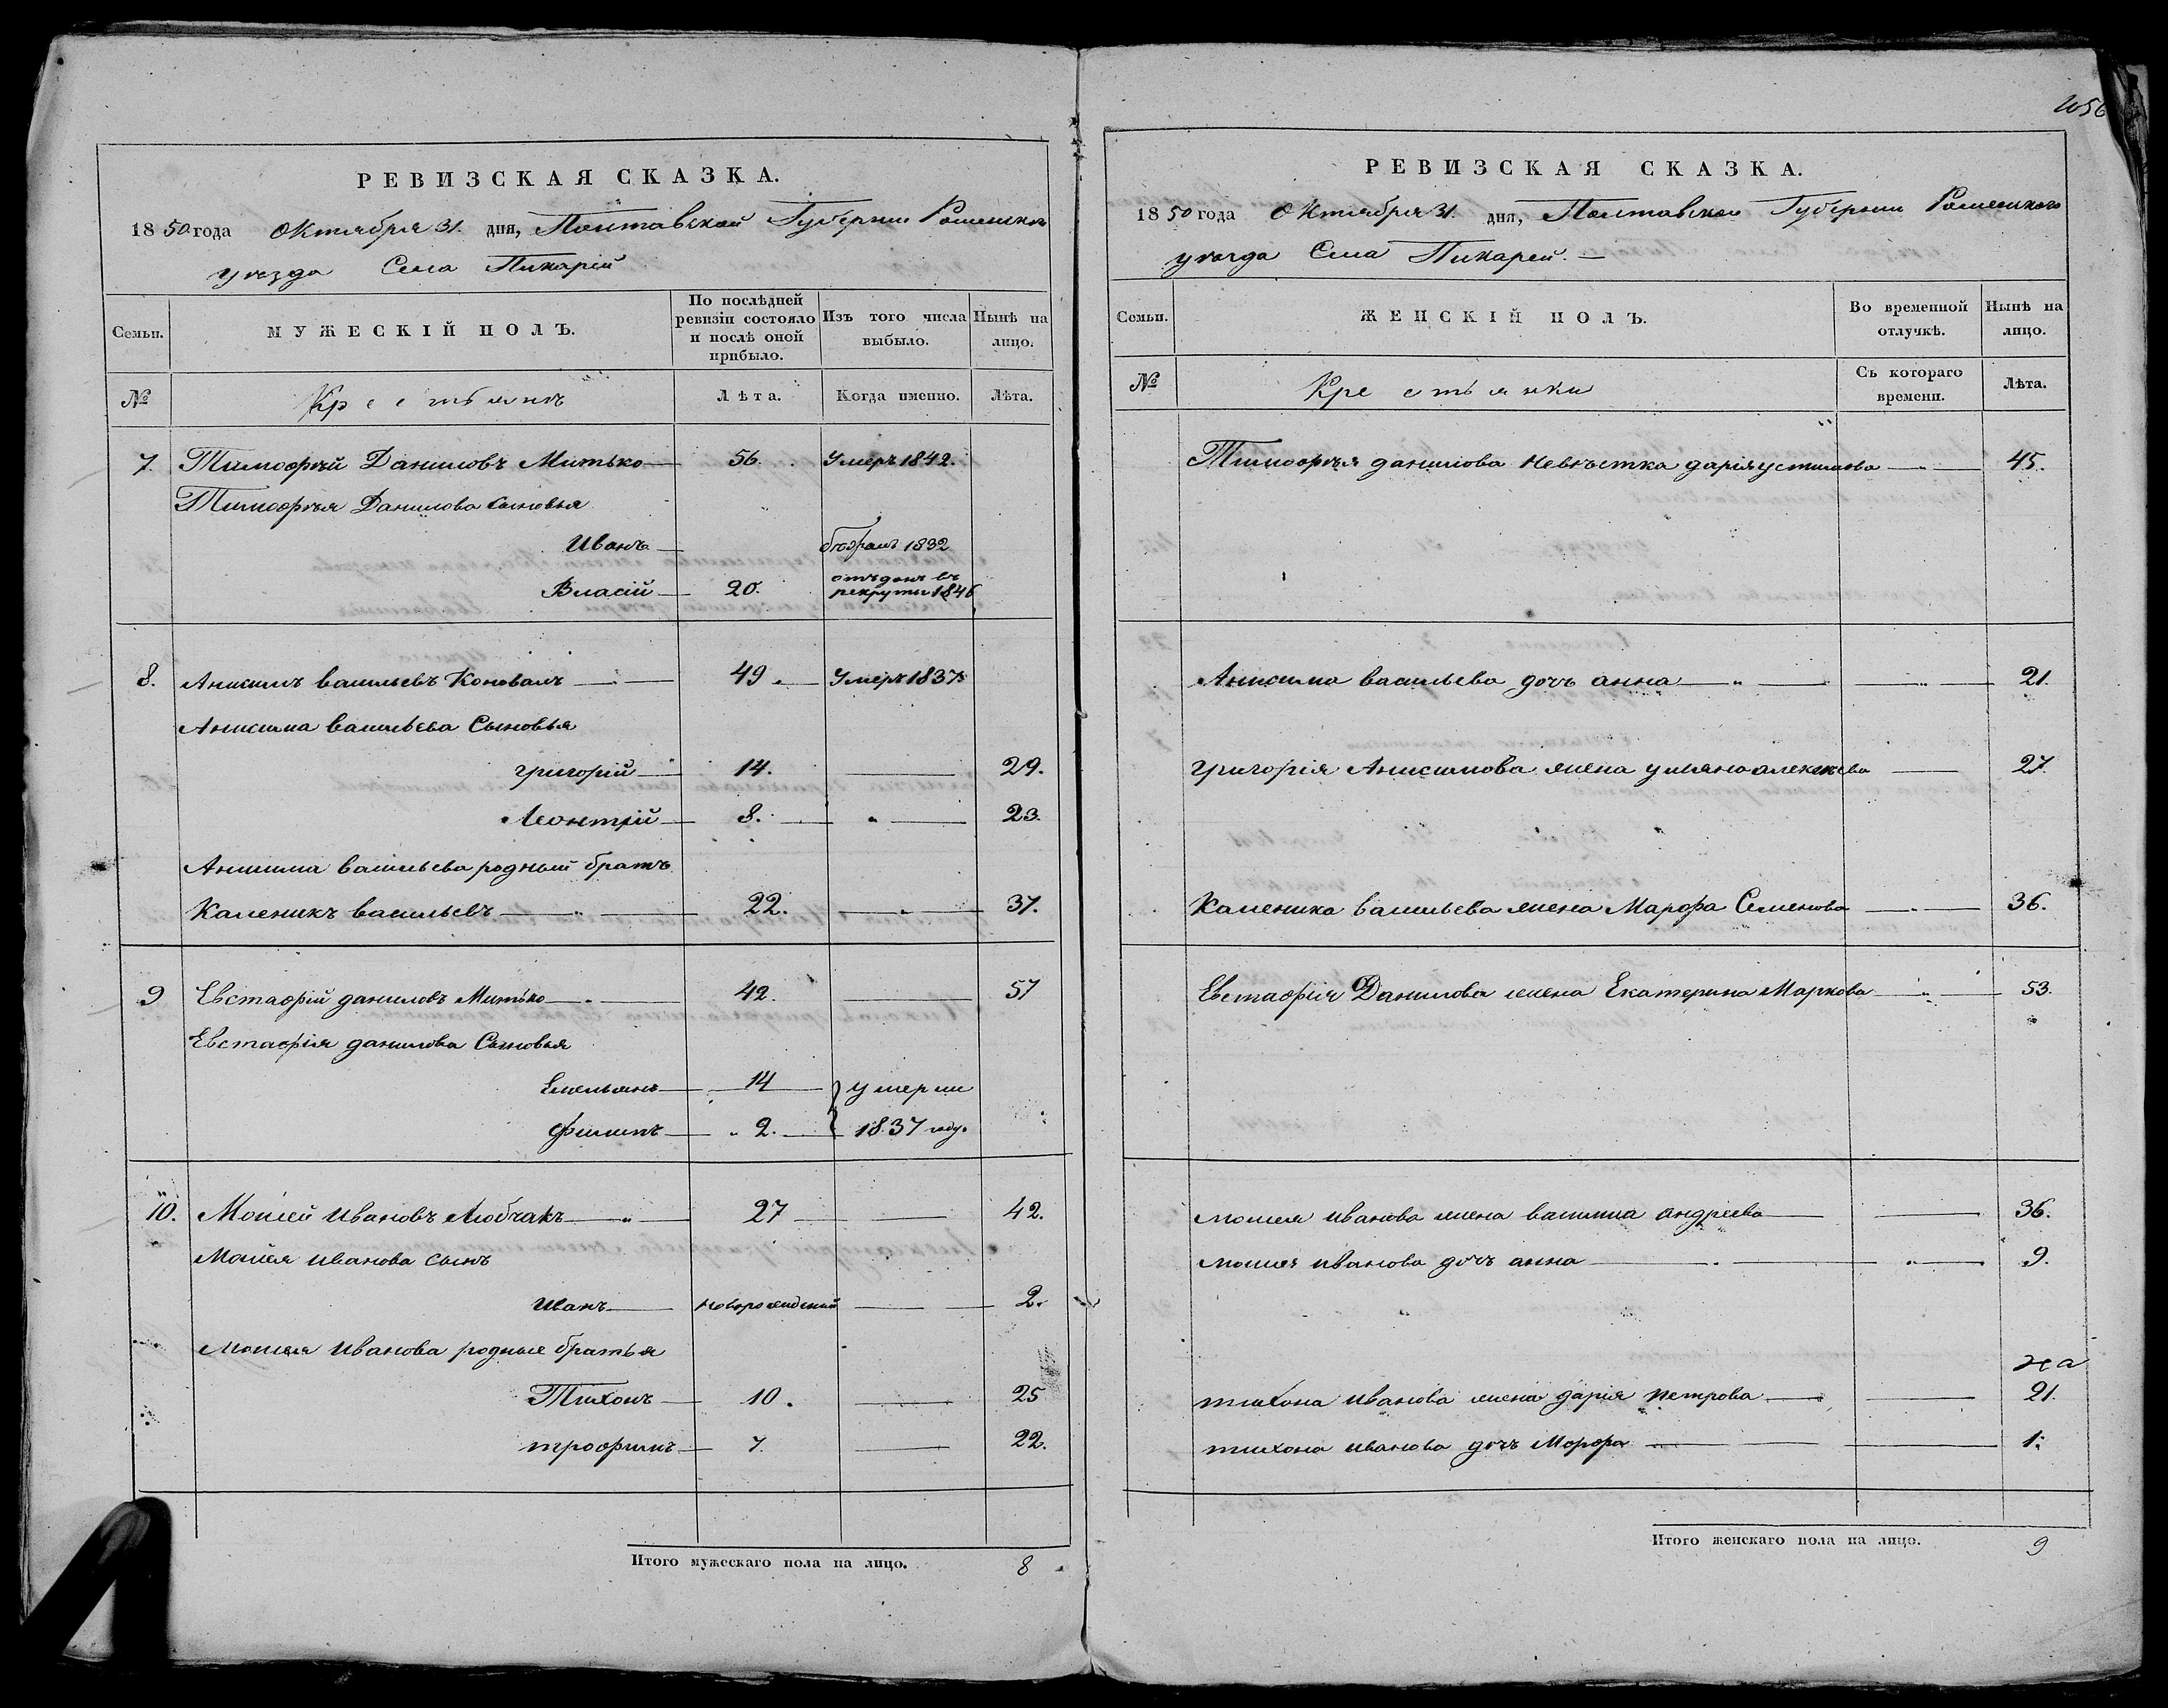 1056
РЕВИЗСКАЯ СКАЗКА.
1850 года Октября 31. дня, Полтавской Губернии Роменского
уезда Села Пикарей
Семьи. МУЖЕСКІЙ ПОЛЪ. По послѣдней ревизіи состояло и послѣ оной прибыло. Изъ того числа выбыло. Нынѣ на лицо.
№ Крестьянъ Лѣта. Когда именно. Лѣта.
7. Тимофей Даниловъ Митько 56. Умеръ 1842.
Тимофѣя Данилова сыновья
Иванъ 1832
Власій 20. отъданъ въ рекруты 1846
8. Анисимъ васильевъ Коновалъ 49. Умеръ 1837
Анисима васильева Сыновья
григорий 14. 29.
Леонтій 8. 23.
Анисима васильева родный братъ
Каленикъ васильевъ 22. 37.
9 Евстафій даниловъ Митько 42. 57
Евстафія данилова Сыновья
Емельянъ 14 умерли
филипъ 2. 1837 году.
10. Мойсей Ивановъ Любчакъ 27 42.
Мойсея иванова сынъ
Иванъ новорожденный 2.
Мойсея иванова родные братья
Тихонъ 10. 25
трофимъ 7. 22.
Итого мужескаго пола на лицо. 8
РЕВИЗСКАЯ СКАЗКА.
1850 года Октября 31. дня, Полтавской Губернии Роменского
уезда Села Пикарей.
Семьи. ЖЕНСКІЙ ПОЛЪ. Во временной отлучкѣ. Нынѣ на лицо.
№ Крестьянки Съ котораго времени. Лѣта.
Тимофѣя данилова невѣстка дарія устимова 45.
Анисима васильева дочъ анна 21.
григорія Анисимова жена ульяна алексѣева 27.
Каленика васильева жена Марфа Семенова 36.
Евстафія Данилова жена Екатерина Маркова 53.
мойсея иванова жена василиса андреева 36.
мойсея иванова дочъ анна 9.
тихона иванова жена дарія петрова 21.
тихона иванова дочъ Марфа 1.
Итого женскаго пола на лицо. 9